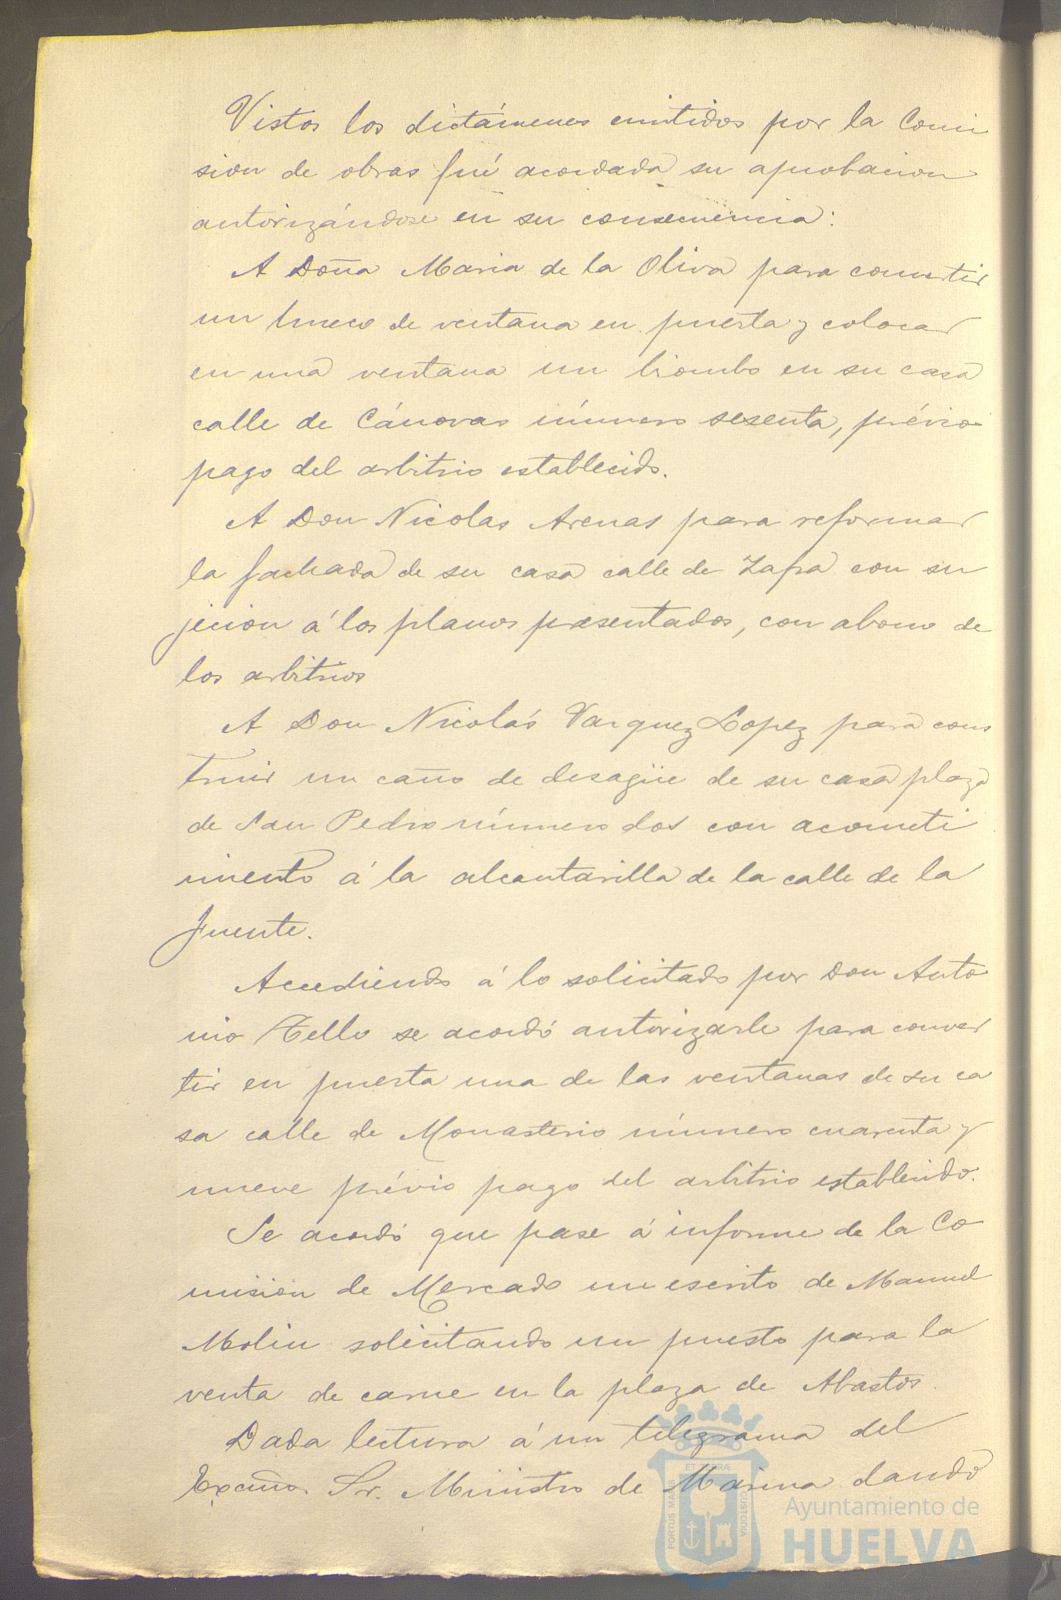 Vistos los dictámenes emitidos por la Comi
sion de obras fué acordada su aprobacion
autorizándose en su consecuencia:
A Doña Maria de la Oliva para convertir
un hueco de ventana en puerta y colocar
en una ventana un biombo en su casa
calle de Cánovas número sesenta, prévio
pago del arbitrio establecido.
A Don Nicolas Arenas para reformar
la fachada de su casa calle de Zafra con su
jecion á los planos presentados, con abono de
los arbitrios
A Don Nicolás Vazquez Lopez para cons
truir un caño de desagüe de su casa plaza
de San Pedro número dos con acometi
miento á la alcantarilla de la calle de la
fuente.
Accediendo á lo solicitado por Don Anto
nio Tello se acordó autorizarle para conver
tir en puerta una de las ventanas de su ca
sa calle de Monasterio número cuarenta y
nueve prévio pago del arbitrio establecido.
Se acordó que pase á informe de la Co
mision de Mercado un escrito de Manuel
Molin solicitando un puesto para la
venta de carne en la plaza de Abastos.
Dada lectura á un telegrama del
Excmo. Sr. Ministro de Marina dando
PORTUS MARIS ET TERRAE CUSTODIA
Ayuntamiento de
HUELVA